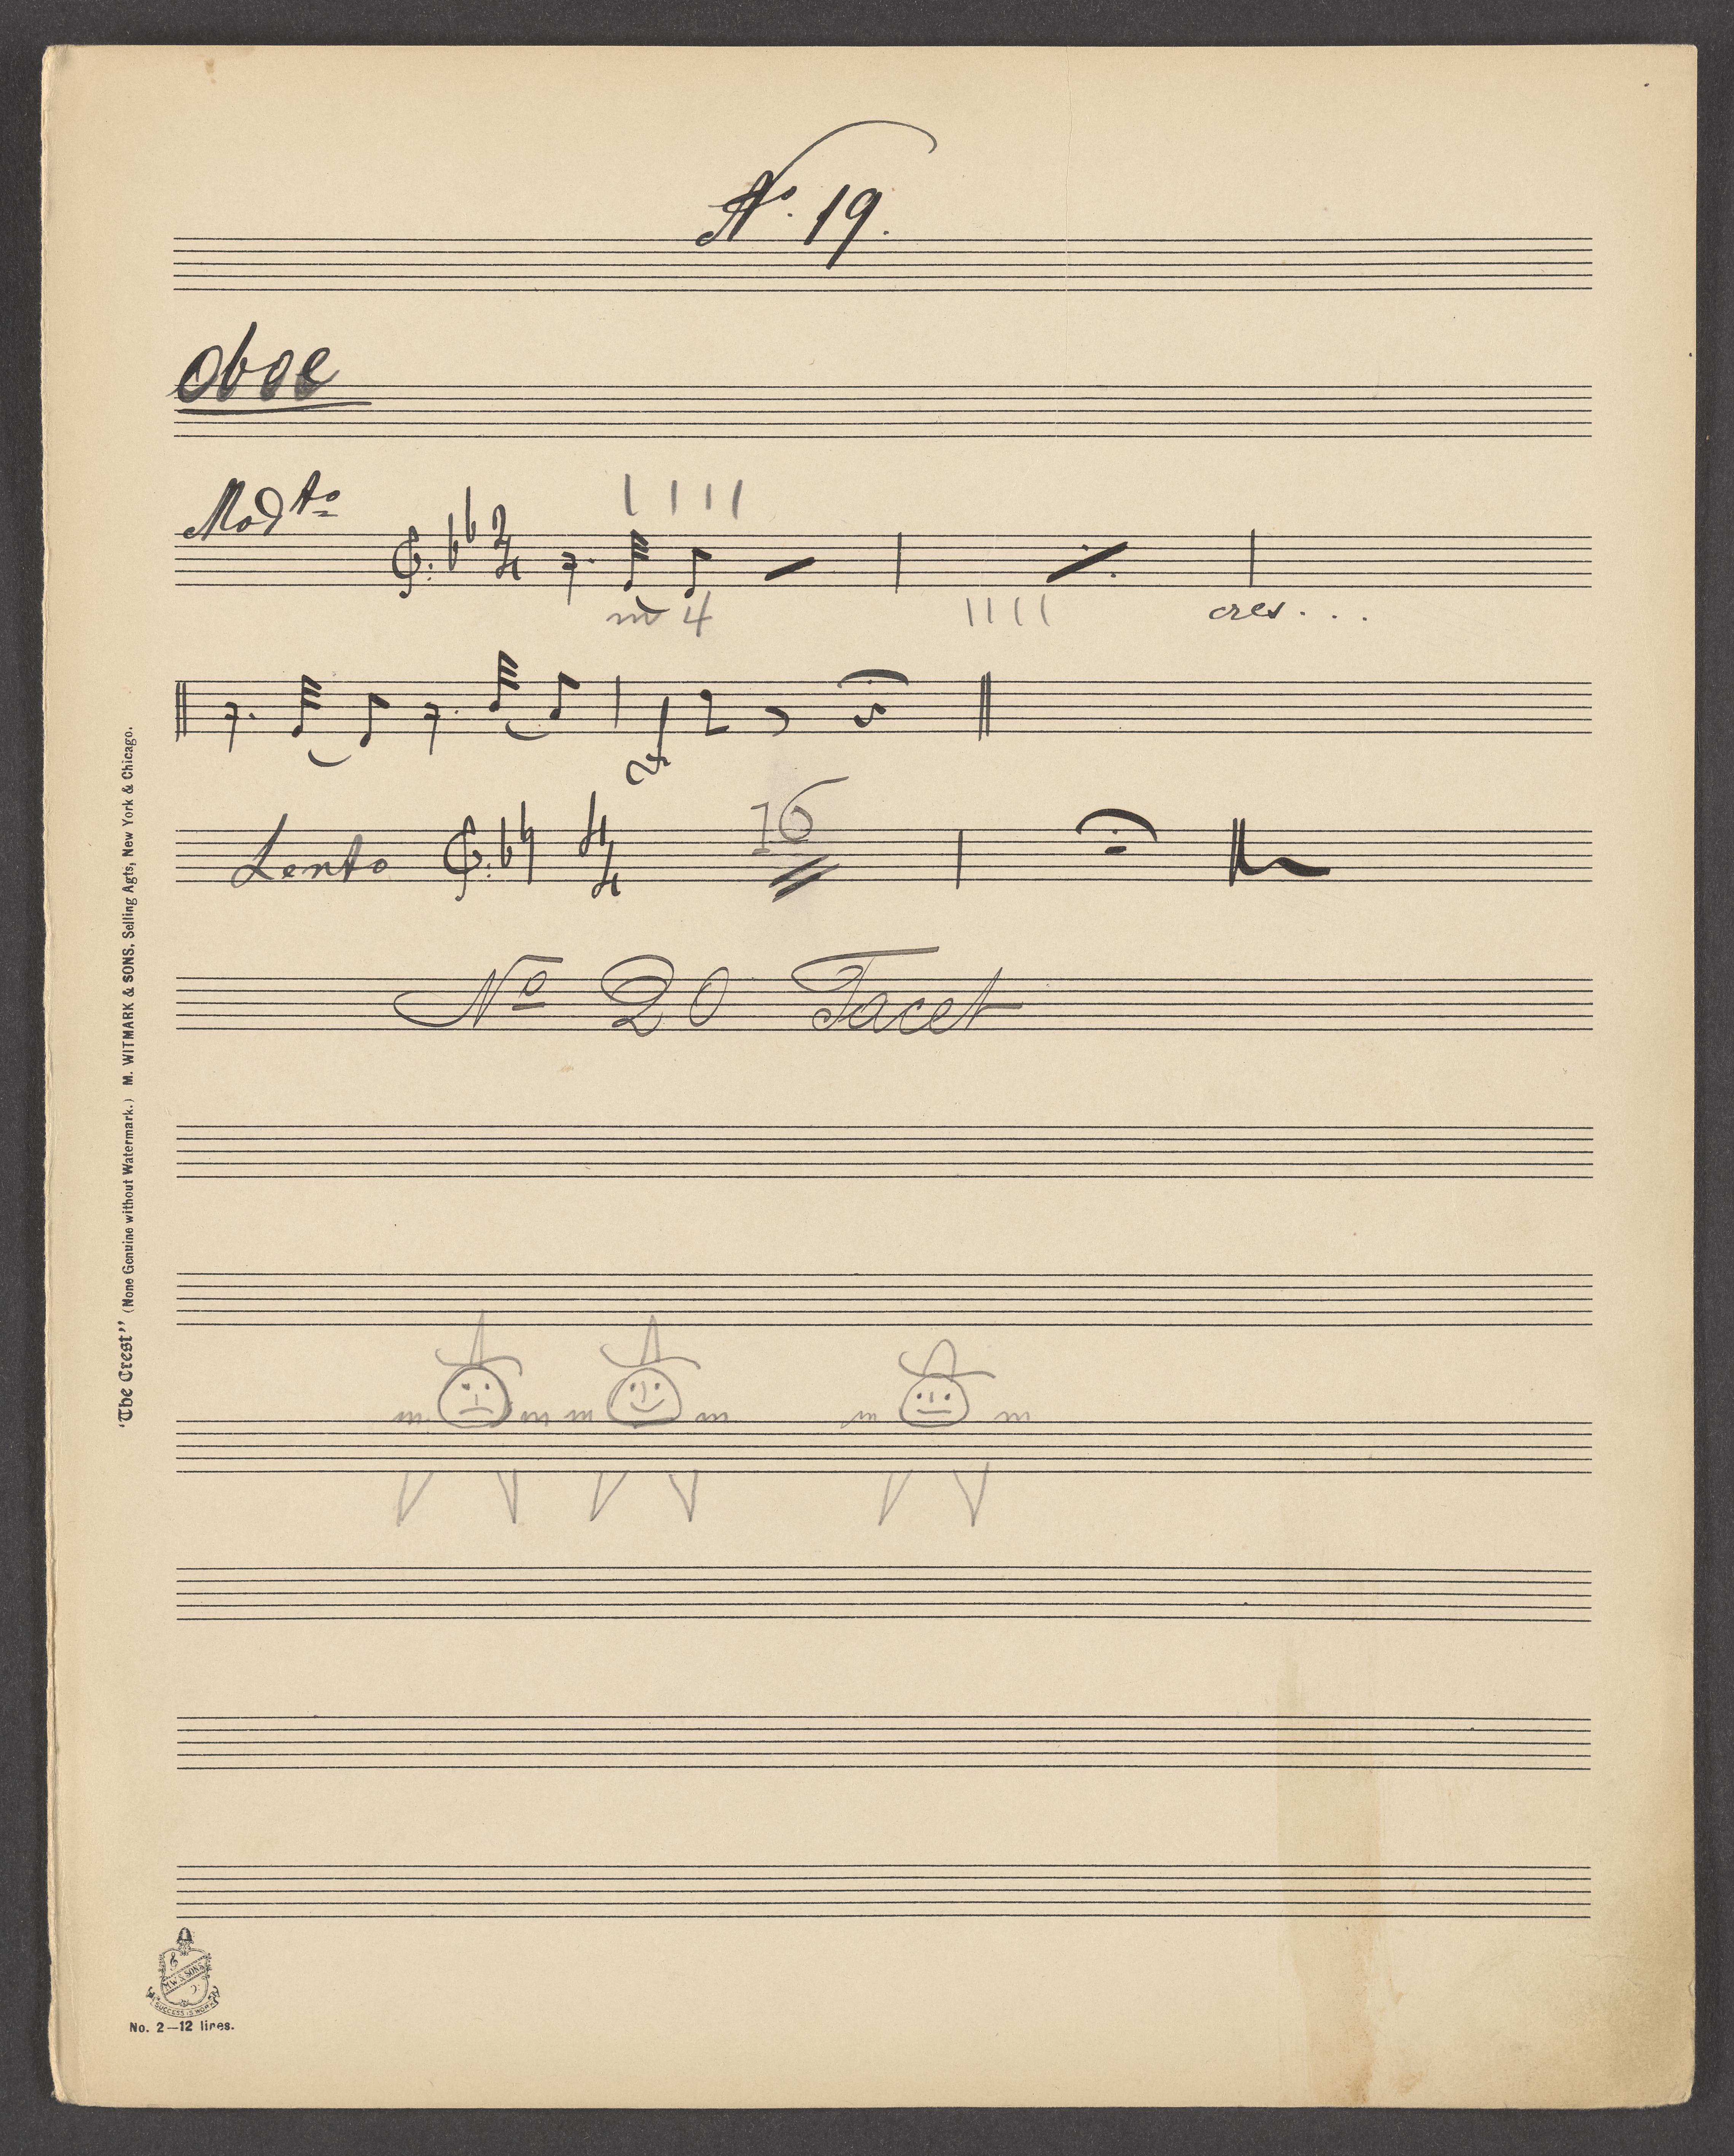 No. 19.
Oboe
Modto
2/4
in 4
cres...
rf
Lento
4/4
16
No 20 Tacet
"The Crest" (None Genuine without Watermark.) M. WITMARK & SONS, Selling Agts, New York & Chicago.
M.W & SONS
SUCCESS IS WORK
No. 2—12 lines.